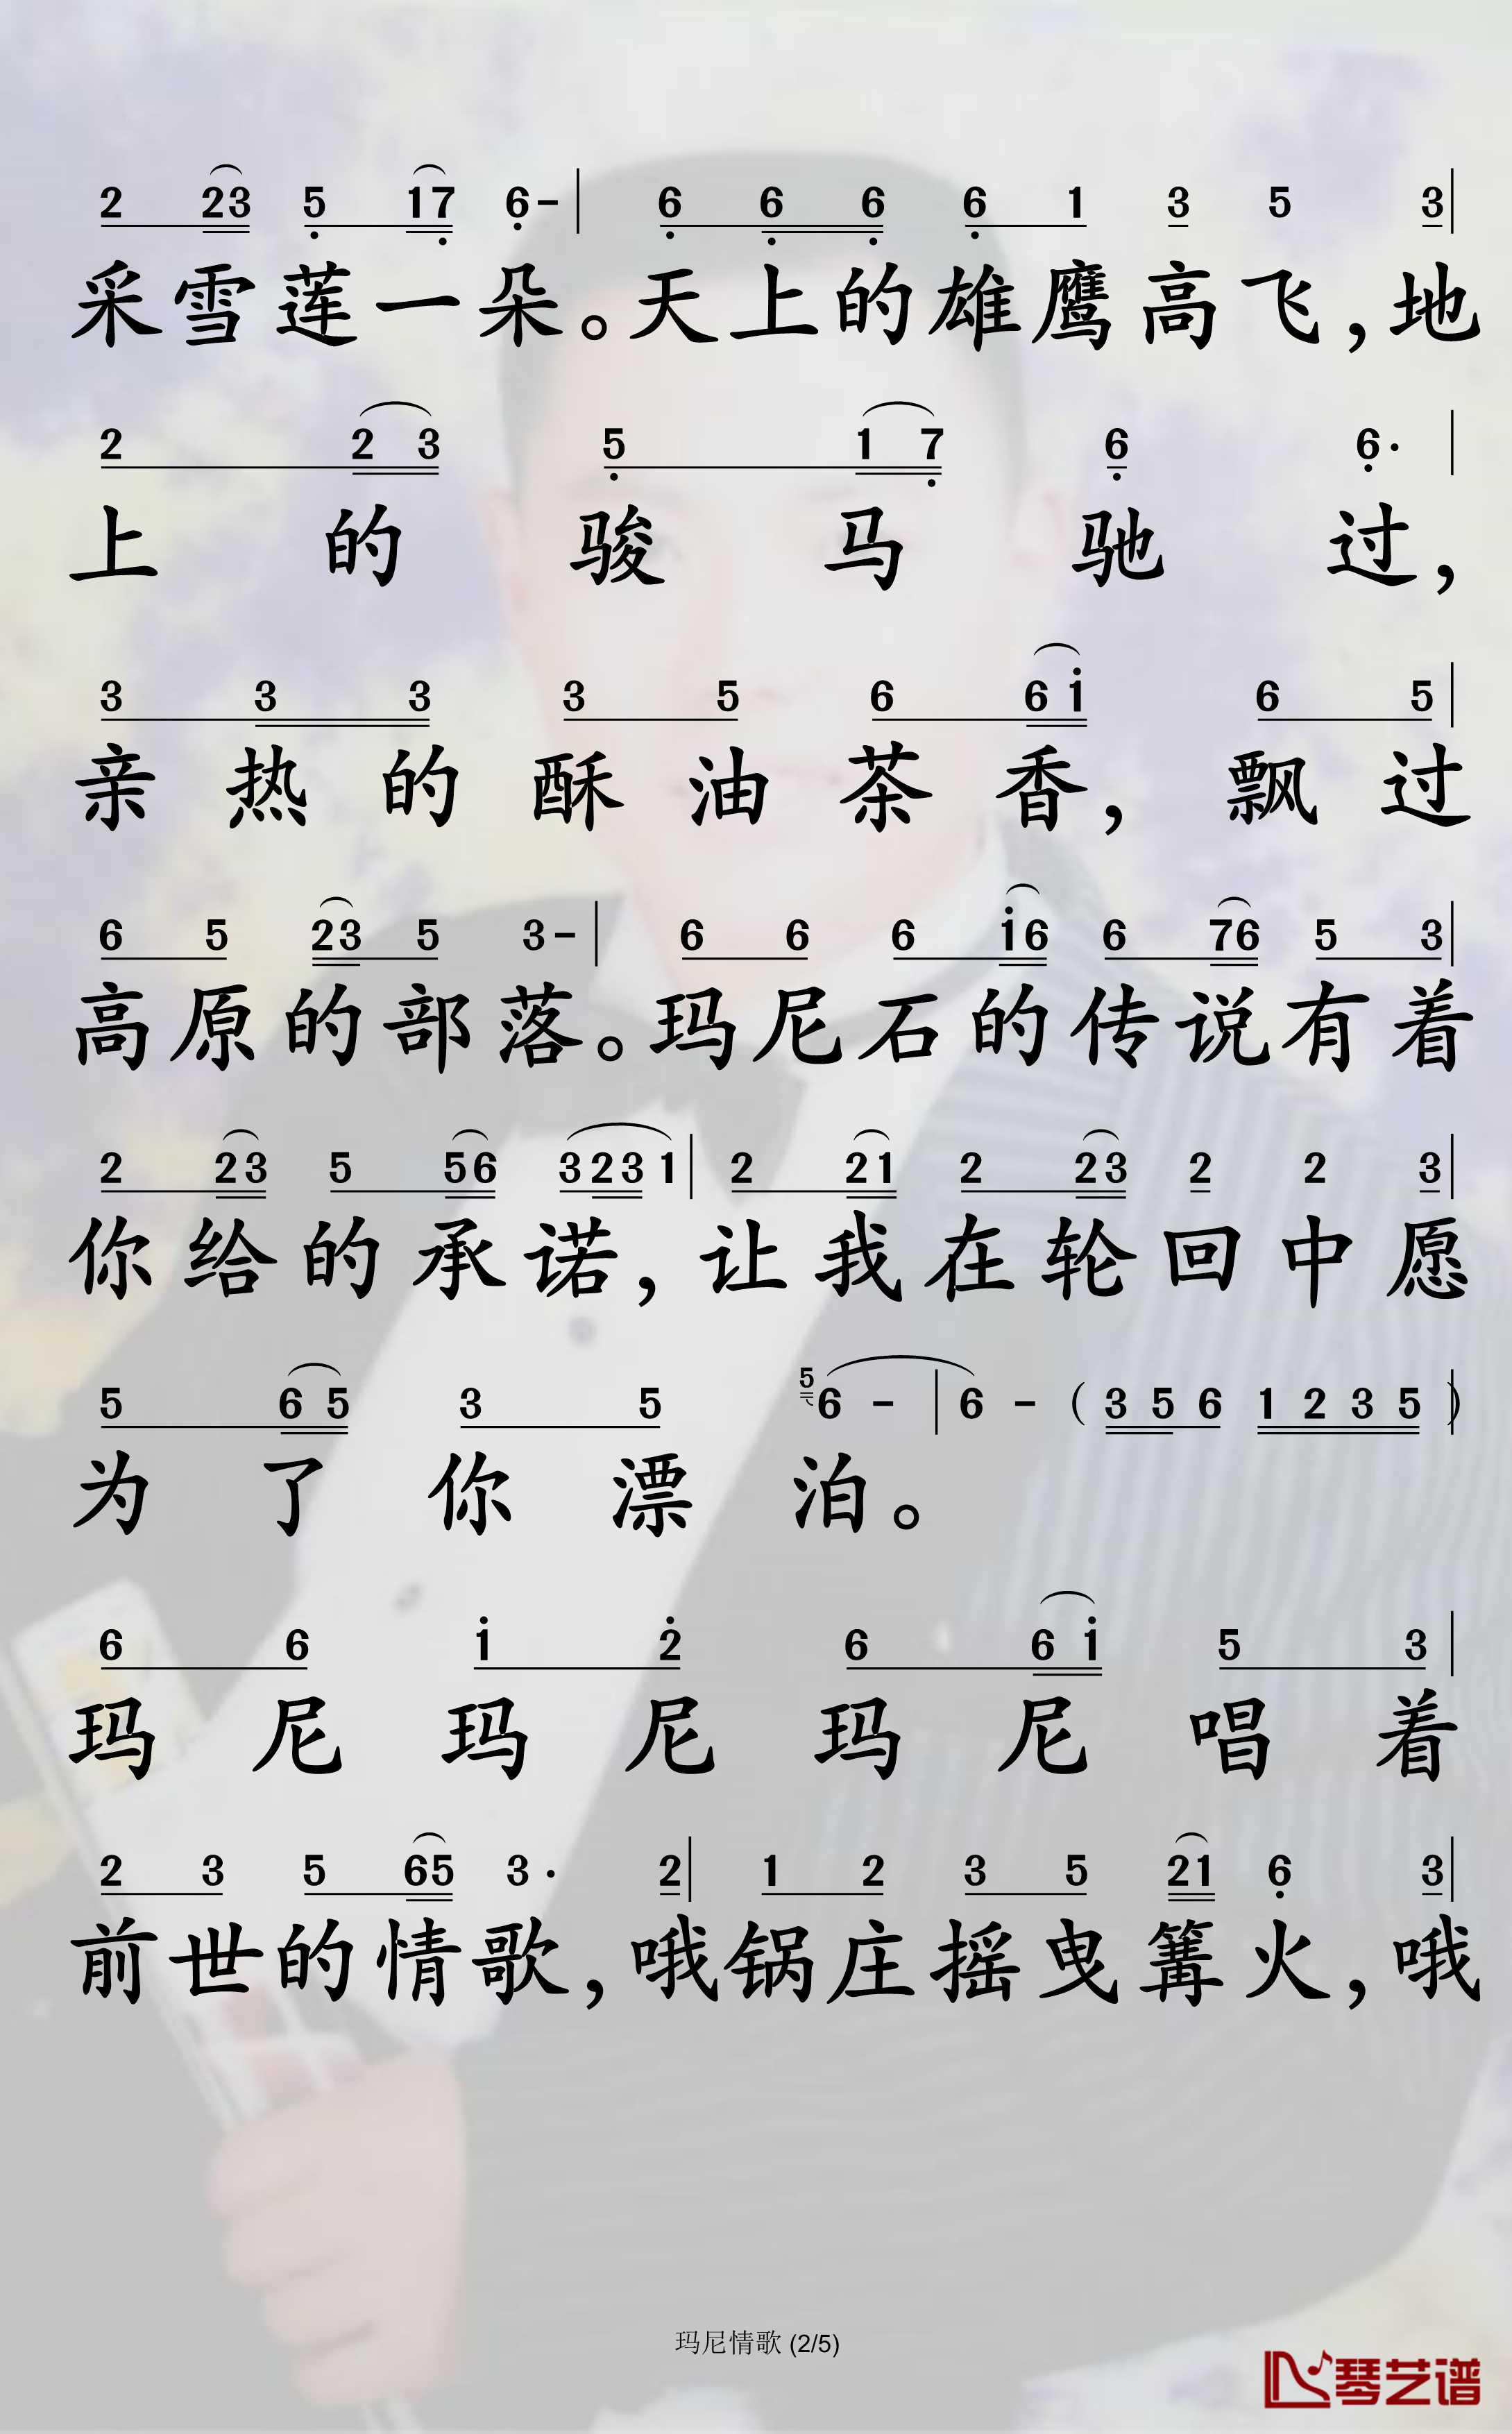 2 23 5 17 6- | 6 6 6 6 1 3 5 3 |
采雪莲一朵。天上的雄鹰高飞,地
2 2 3 5 1 7 6 6· |
上的骏马驰过,
3 3 3 3 5 6 6 i 6 5 |
亲热的酥油茶香,飘过
6 5 23 5 3- | 6 6 6 i6 6 76 5 3 |
高原的部落。玛尼石的传说有着
2 23 5 56 323 1 | 2 21 2 23 2 2 3 |
你给的承诺,让我在轮回中愿
5 6 5 3 5 5 6 - | 6 - ( 3 5 6 1 2 3 5 ) |
为了你漂泊。
6 6 i 2̇ 6 6 i 5 3 |
玛尼玛尼玛尼唱着
2 3 5 65 3· 2 | 1 2 3 5 21 6 3 |
前世的情歌,哦锅庄摇曳篝火,哦
玛尼情歌 (2/5)
琴艺谱